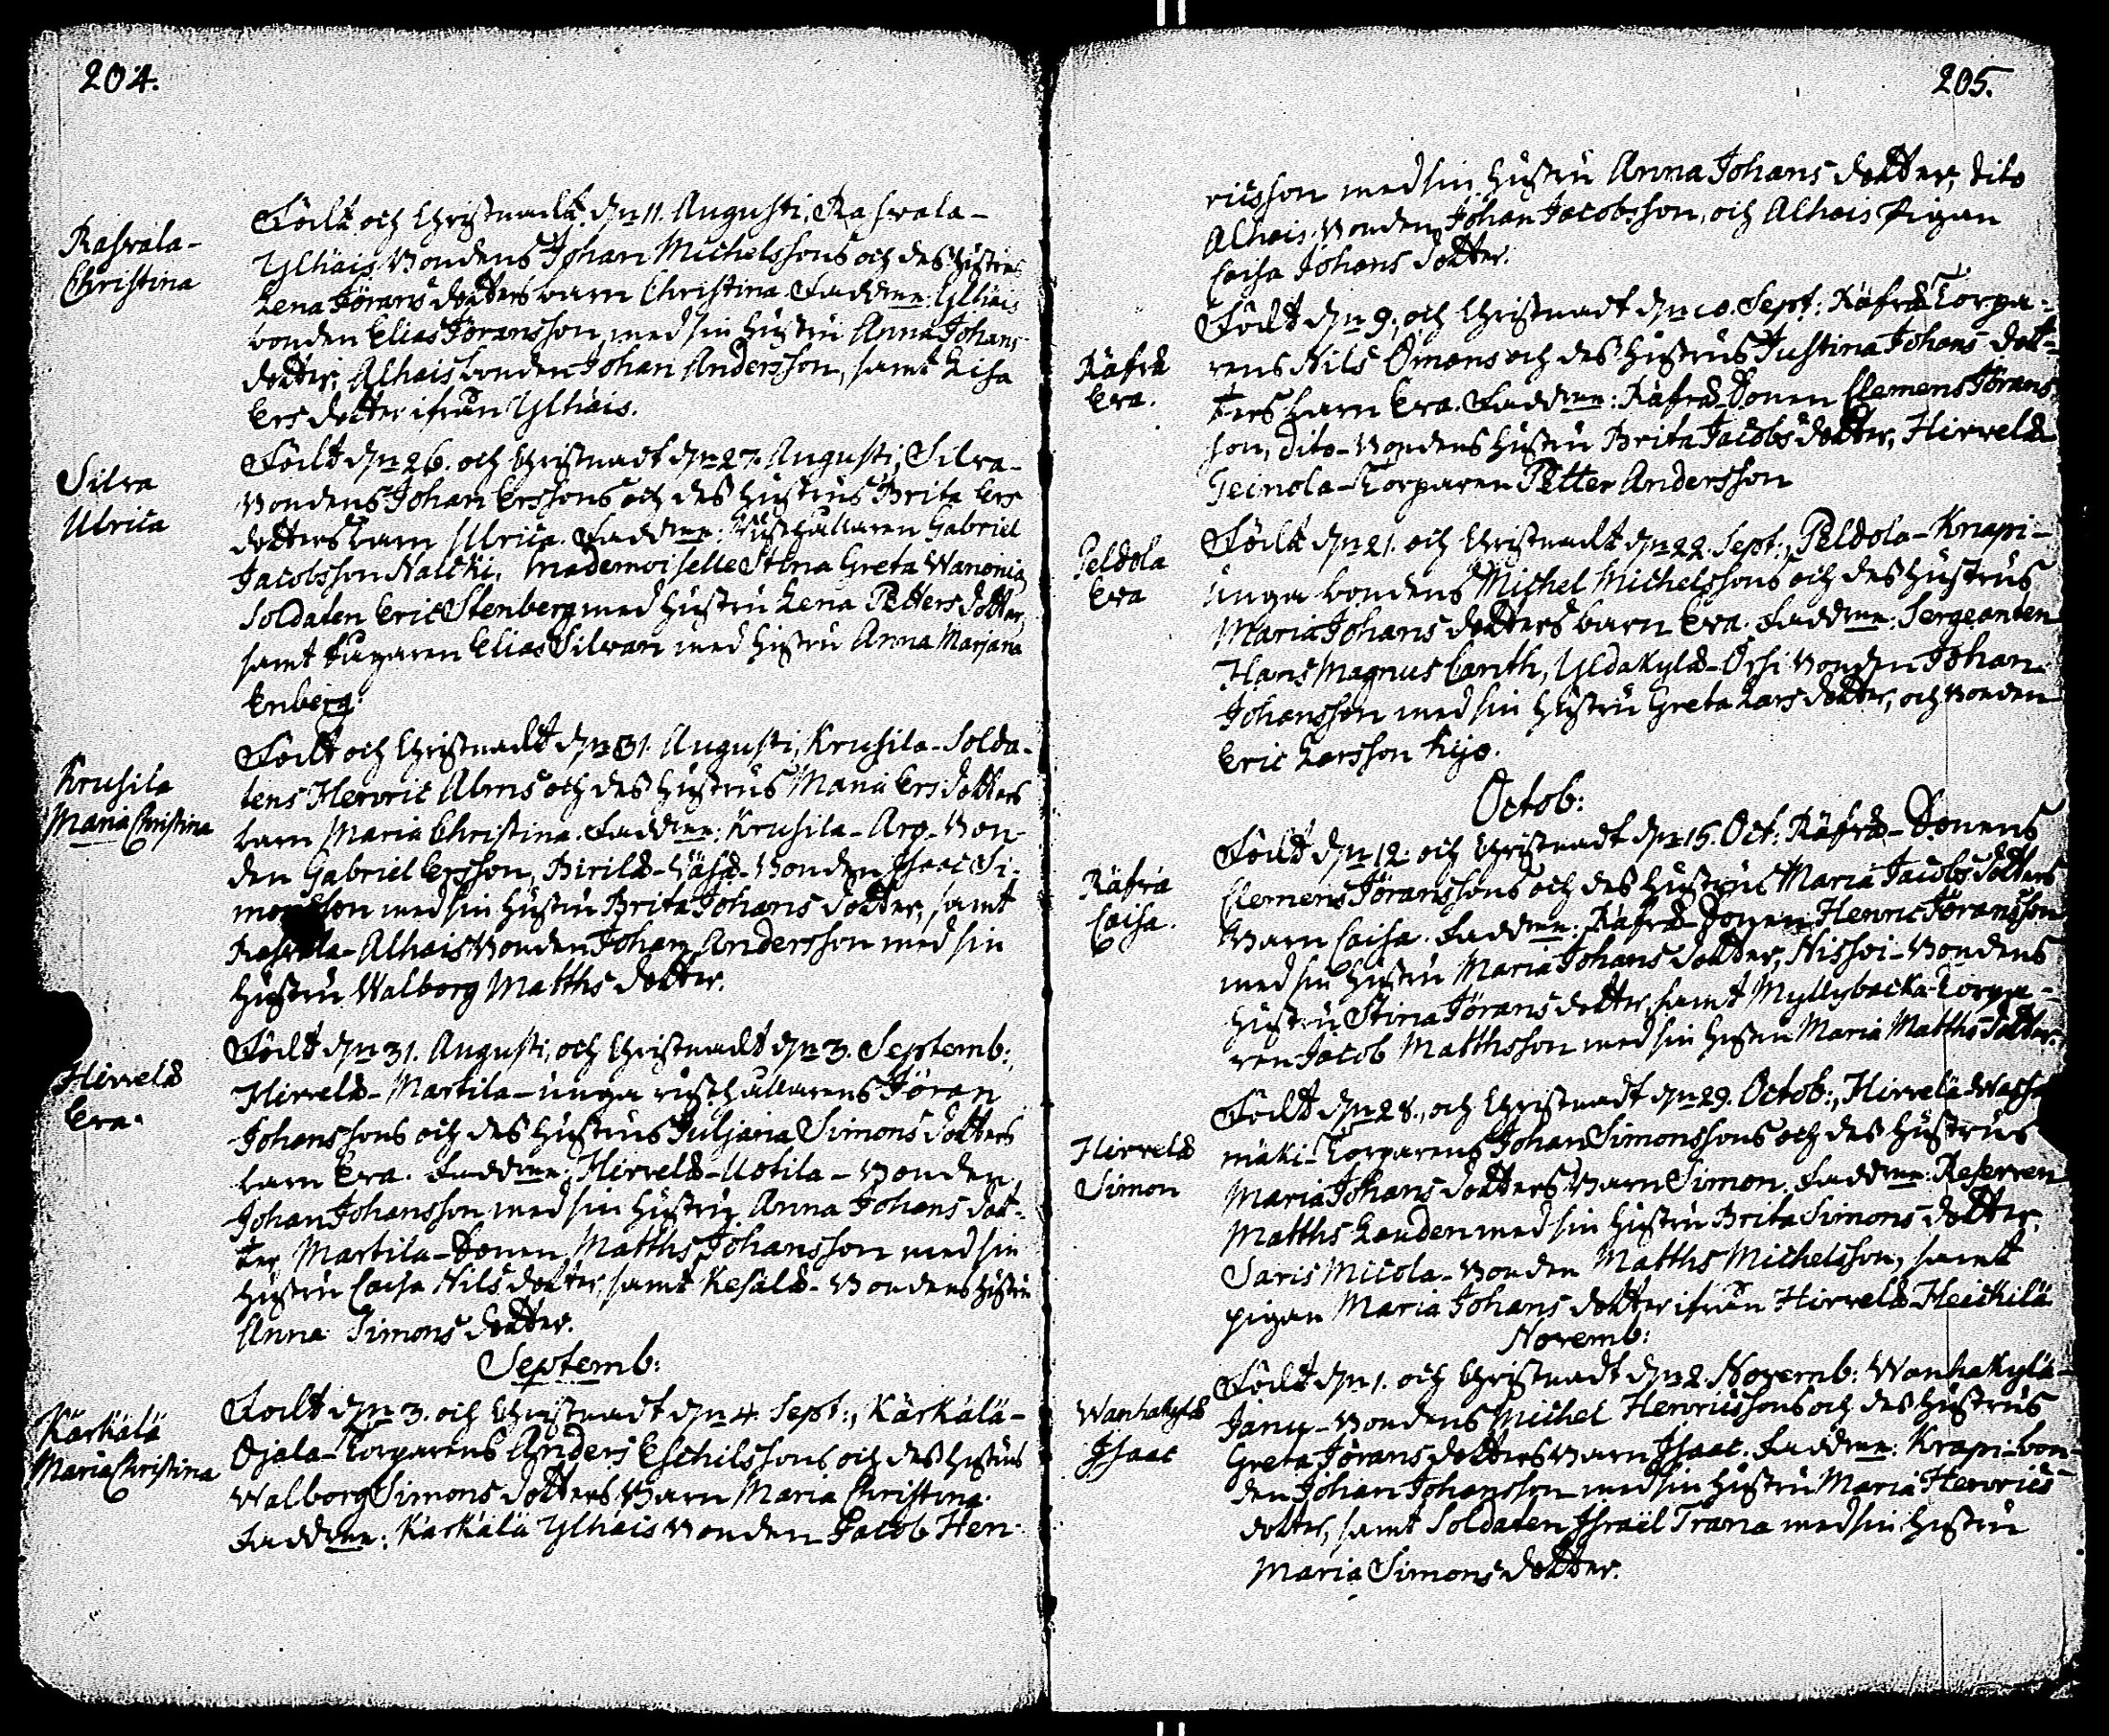 204.
Rasvala-
Christina
Födt och Christnadt d. 11. Augusti, Rasvala-
Ylhäis Bondens Johan Michelssons och des hustrus
Lena Jörans dotters barn Christina. Faddrar: Ylhäis
bonden Elias Jöransson, med sin hustru Anna Johans
dotter, Alhais bonden Johan Andersson, samt Lisa
Ers dotter ifrån Ylhäis.
Silva
Ulrica
Födt d. 26. och Christnadt d. 27. Augusti, Silva-
Bondens Johan Erssons och des hustrus Brita Ers
dotters barn Ulrica. Faddrar: Rusthållaren Gabriel
Jacobsson Nalcki, Mademoiselle Stina Greta Wanonia,
Soldaten Eric Stenberg med hustru Lena Petters dotter,
samt Elias Silvan med hustru Anna Marjana
Enberg.
Krusila
Maria Christina
Födt och Christnadt d. 31. Augusti, Krusila-Solda-
tens Henric Alms och des hustrus Maria Ers dotters
barn Maria Christina. Faddrar: Krusila-Aro-Bon-
den Gabriel Ersson, Birilä-Häsä-Bonden Isaac Si-
monsson med sin hustru Brita Johans dotter, samt
Rasvala-Alhais Bonden Johan Andersson med sin
hustru Walborg Matths dotter.
Hirvelä
Eva.
Födt d. 31. Augusti, och Christnadt d. 3. Septemb:,
Hirvelä-Martila-unga rusthållarens Jöran
Johanssons och des hustrus Juljana Simons dotters
barn Eva. Faddrar: Hirvelä-Uotila-Bonden,
Johan Johansson med sin hustru Anna Johans dot-
ter, Martila-Sonen Matths Johansson med sin
hustru Caisa Nils dotter, samt Kesälä-Bondens hustru
Anna Simons dotter.
Septemb:
Kärkälä
Maria Christina
Födt d. 3. och Christnadt d. 4. Sept:, Kärkälä-
Ojala-Torparens Anders Eschilssons och des hustrus
Walborg Simons dotters Barn Maria Christina.
Faddrar: Kärkälä Ylhäis Bonden Jacob Hen-
205.
ricsson med sin hustru Anna Johans dotter, dito
Alhais Bonden Johan Jacobsson, och Alhais pigan
Caisa Johans dotter.
Räfsä
Eva.
Födt d. 9., och Christnadt d. 10. Sept: Räfsä Torpa-
rens Nils Ömans och des hustrus Justina Johans-dot-
ters barn Eva. Faddrar: Räfsä-Sonen Clemens Jörans-
son, dito-Bondens hustru Brita Jacobs dotter, Hirvelä
Teinola-Torparen Petter Andersson
Peldola
Eva
Födt d. 21. och Christnadt d. 22. Sept:, Peldola-Knapi-
unga bondens Michel Michelssons och des hustrus
Maria Johans dotters barn Eva. Faddrar: Sergeanten
Hans Magnus Canth, Yldakylä-Orsi Bonden Johan
Johansson med sin hustru Greta Lars dotter, och Bonden
Eric Larsson Kijo.
Octob:
Räfsä
Caisa.
Födt d. 12. och Christnadt d. 15. Oct: Räfsä-Sonens
Clemens Jöranssons och des hustrus Maria Jacobs dotters
Barn Caisa. Faddrar: Räfsä-Sonen Henric Jöransson
med sin hustru Maria Johans dotter, Nissoi-Bondens
hustru Stina Jörans dotter, samt Myllybacka-Torpa-
ren Jacob Matthsson med sin hustru Maria Matths-dotter.
Hirvelä
Simon
Födt d. 28., och Christnadt d. 29. Octob:, Hirvelä-
mäki-Torparens Johan Simonssons och des hustrus
Maria Johans dotters Barn Simon. Faddrar: Reserven
Matths Lauden med sin hustru Brita Simons dotter,
Saris Micola-Bonden Matths Michelsson, samt
pigan Maria Johans dotter ifrån Hirvelä Heickilä.
Novemb:
Wanhakylä
Isaac
Födt d. 1. och Christnadt d. 2. Novemb: Wanhakylä-
Janu-Bondens Michel Henricssons och des hustrus
Greta Jörans dotters Barn Isaac. Faddrar: Krapi-bon-
den Johan Johansson med sin hustru Maria Henrics-
dotter, samt Soldaten Israël Trana med sin hustru
Maria Simons dotter.